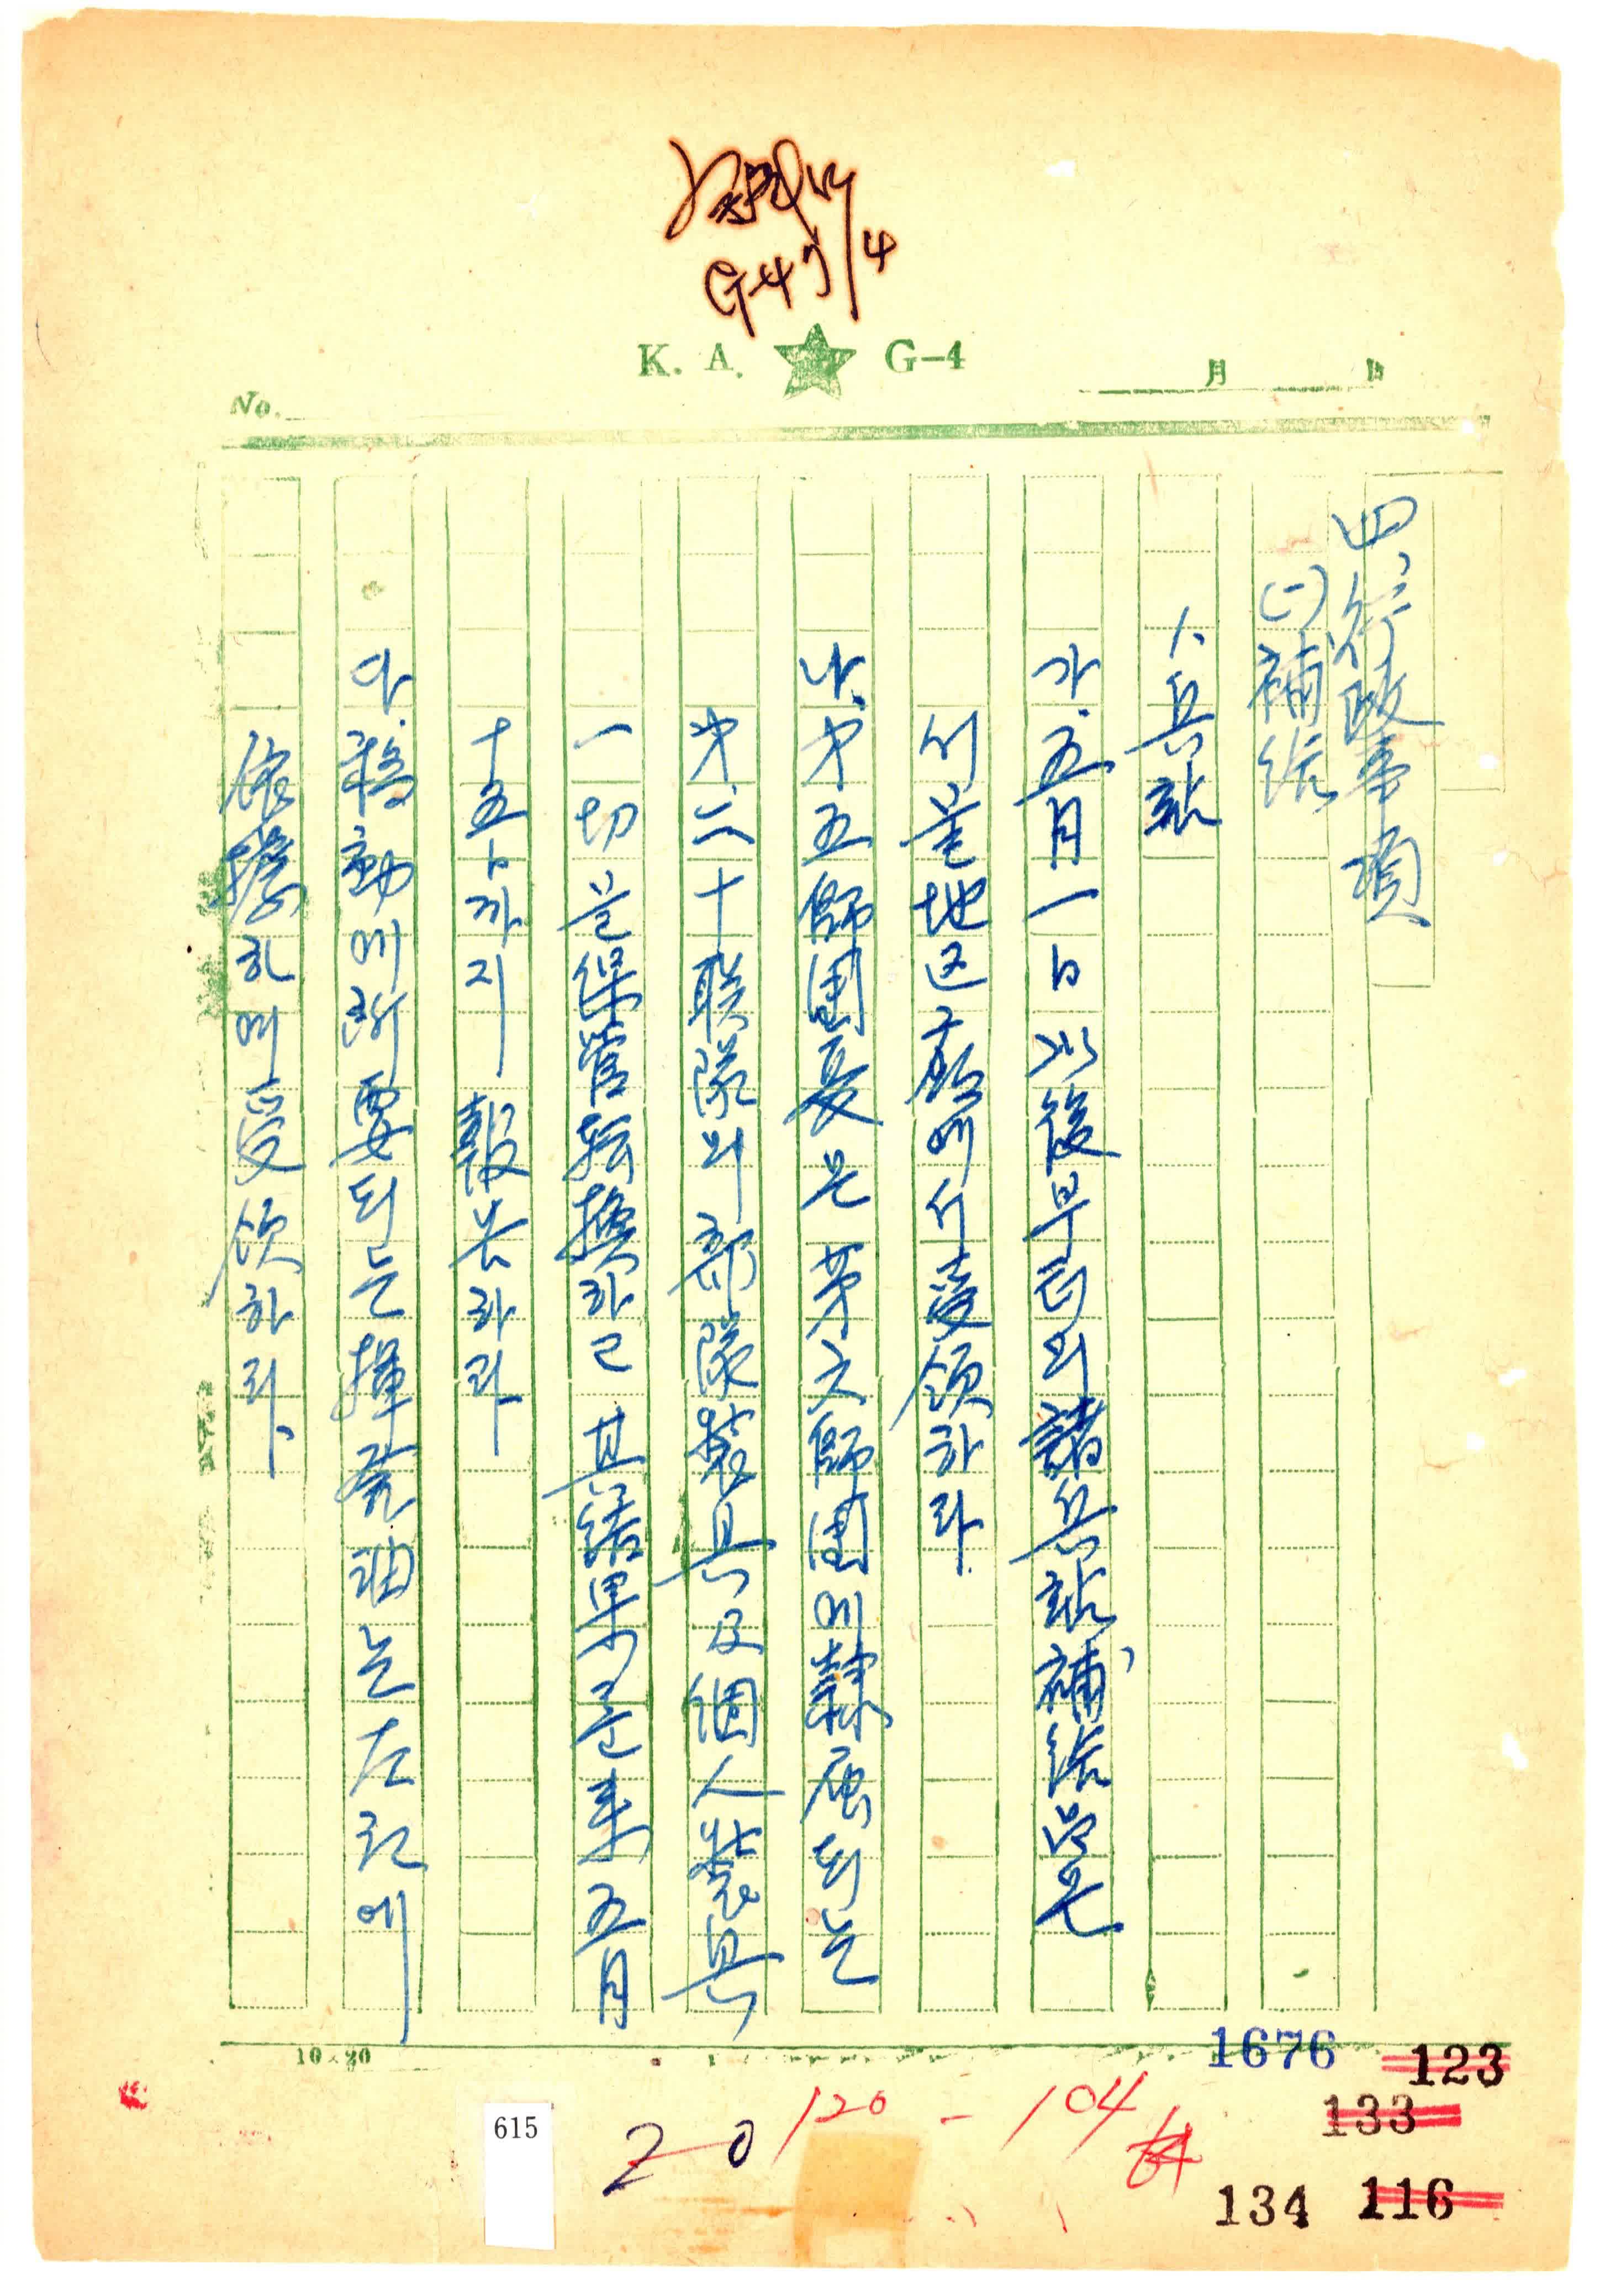 G-4
K. A. ★ G-4
月 日
No.
四、行政事項
(一)補給
1、兵站
가. 五月一日以後부터의諸兵站補給品은
서울地区廠에서受領하라.
나. 才五師団長은 第六師団에隸属되는
才.二十联隊의部隊装具及個人装具
一切을保管転換하고 其結果를来五月
十五日까지 報告하라
다. 移動에所要되는揮発油는左記에
依據하여受領하라、
10×20
1676
123
133
134
116
615
20
120 - 104